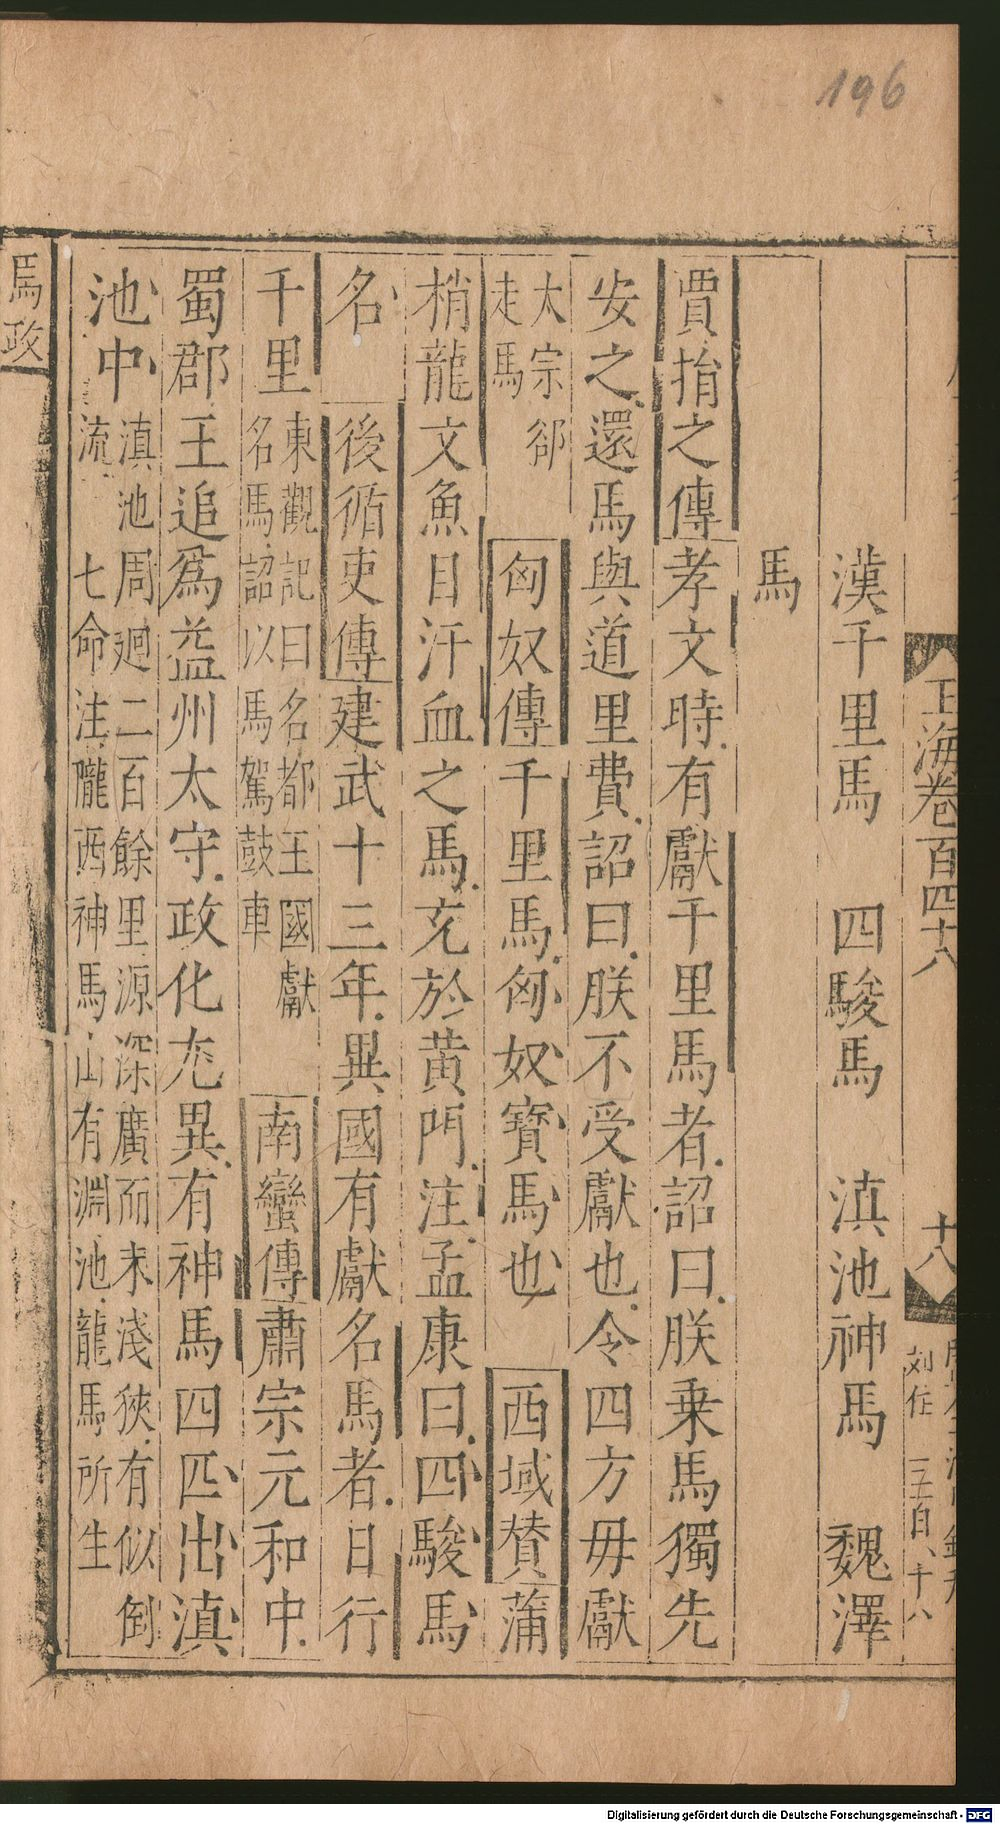 196
玉海卷百四十八
十八
漢千里馬 四駿馬 滇池神馬 魏澤
馬
賈捐之傳孝文時有獻千里馬者詔曰朕乗馬獨先
安之還馬與道里費詔曰朕不受獻也令四方毋獻
太宗郤
走馬
匈奴傳千里馬匈奴寳馬也 西域賛蒲
梢龍文魚目汗血之馬充於黄門注孟康曰四駿馬
名 後循吏傳建武十三年異國有獻名馬者日行
千里
東觀記曰名都王國獻
名馬詔以馬駕鼓車
南蠻傳肅宗元和中
蜀郡王追爲益州太守政化尤異有神馬四匹出滇
池中
滇池周廻二百餘里源深廣而末淺狹有似倒
流 七命注隴西神馬山有淵池龍馬所生
馬政
Digitalisierung gefördert durch die Deutsche Forschungsgemeinschaft - DFG